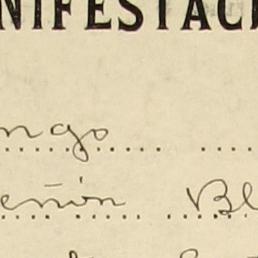 NIFESTAC
ngo
eñón Bl